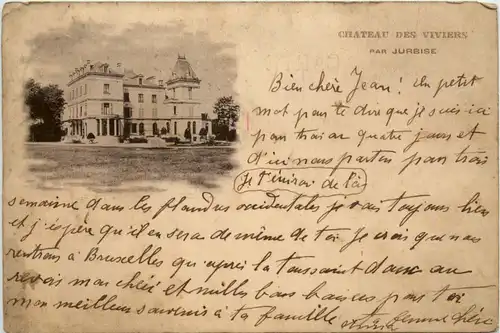 CHATEAU DES VIVIERS
PAR JURBISE
Bien chère Jean! Un petit
mot pour te dire que je suis ici
pour trois ou quatre jours et
d'ici nous partons pour trois
Je t'écrirai de là
semaine dans les flandres occidentales je vais toujours bien
et j'espère qu'il en sera de même de toi Je crois que nous
rentrons à Bruxelles qu'après la toussaint donc au
revoir mon chéri et milles bons baisers pour toi
mon meilleur souvenir à ta famille